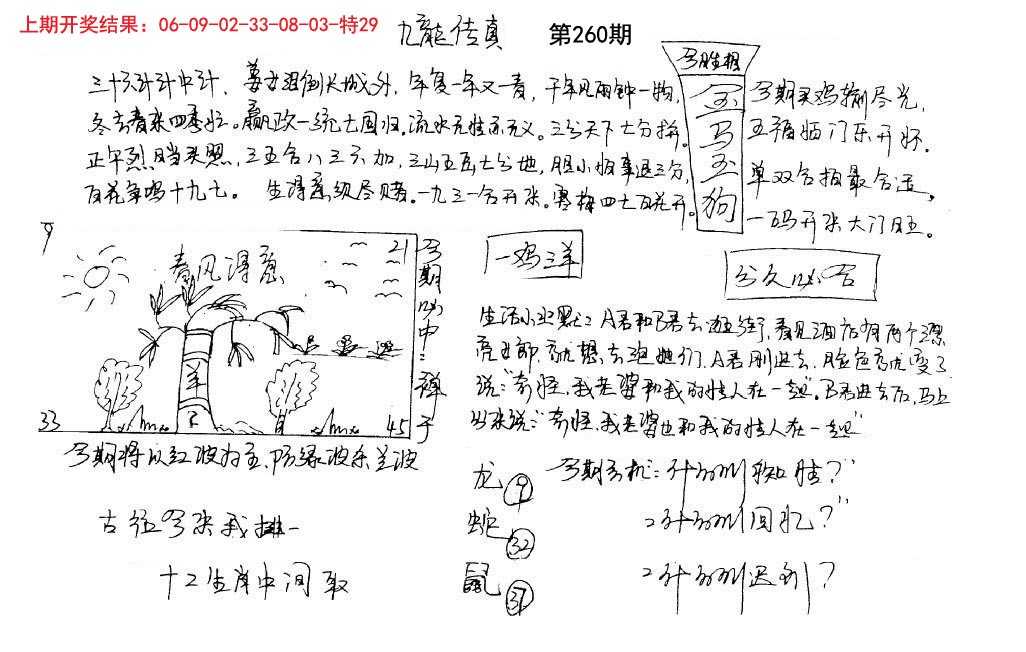 上期开奖结果：06-09-02-33-08-03-特29
九龍传真 第260期
今胜相
三十六计计中计，姜女泪倒长城外，年复一年又一春，千年见两钟一物，
冬去春来四季忙。嬴政一统七国归。流水无情亦无义。三分天下七分拚，
正午烈日当头照，三五合八三六加，三山五岳七分地，胆小怕事退三分，
百花争鸣十九七。生得意须尽赌。一九三一合开张。寒梅四七百花开。
金马玉狗
今期买鸡输尽光，
五福临门乐开怀。
单双合拍最合适，
一码开张大门旺。
9
21
春风得意
羊
33
45
今期必中：禅子
今期将以红波为主，防绿波杀兰波
古往今来我排一
十二生肖中间取
一鸡三羊
分久必合
生活小幽默：A君和B君去逛街，看见酒店有两个漂
亮女郎，就想去泡她们，A君刚进去，脸色就变了
说："奇怪，我老婆和我的情人在一起"。B君进去后，马上
出来说："奇怪，我老婆也和我的情人在一起"
龙 9
蛇 32
鼠 37
今期玄机："什么叫
什么叫回忆？"
什么叫迟到？